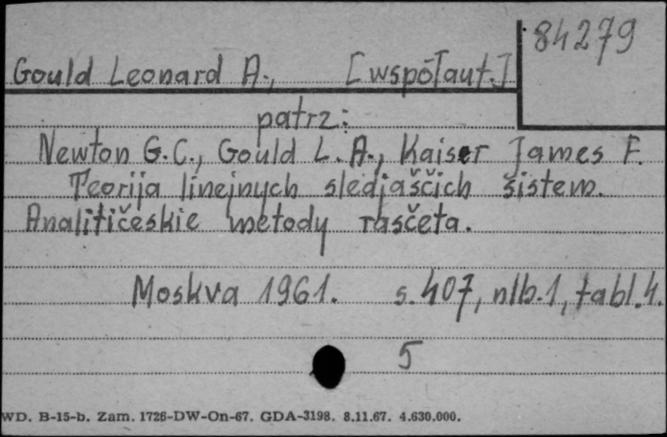 84279
Gould Leonard A., [współaut.]
patrz:
Newton G.C., Gould L. A., Kaiser James F.
Teorija linejnych sledjaščich sistem.
Analitičeskie metody rasčeta.
Moskva 1961. s. 407, nlb. 1, tabl. 4.
5
WD. B-15-b. Zam. 1726-DW-On-67. GDA-3198. 8.11.67. 4.630.000.